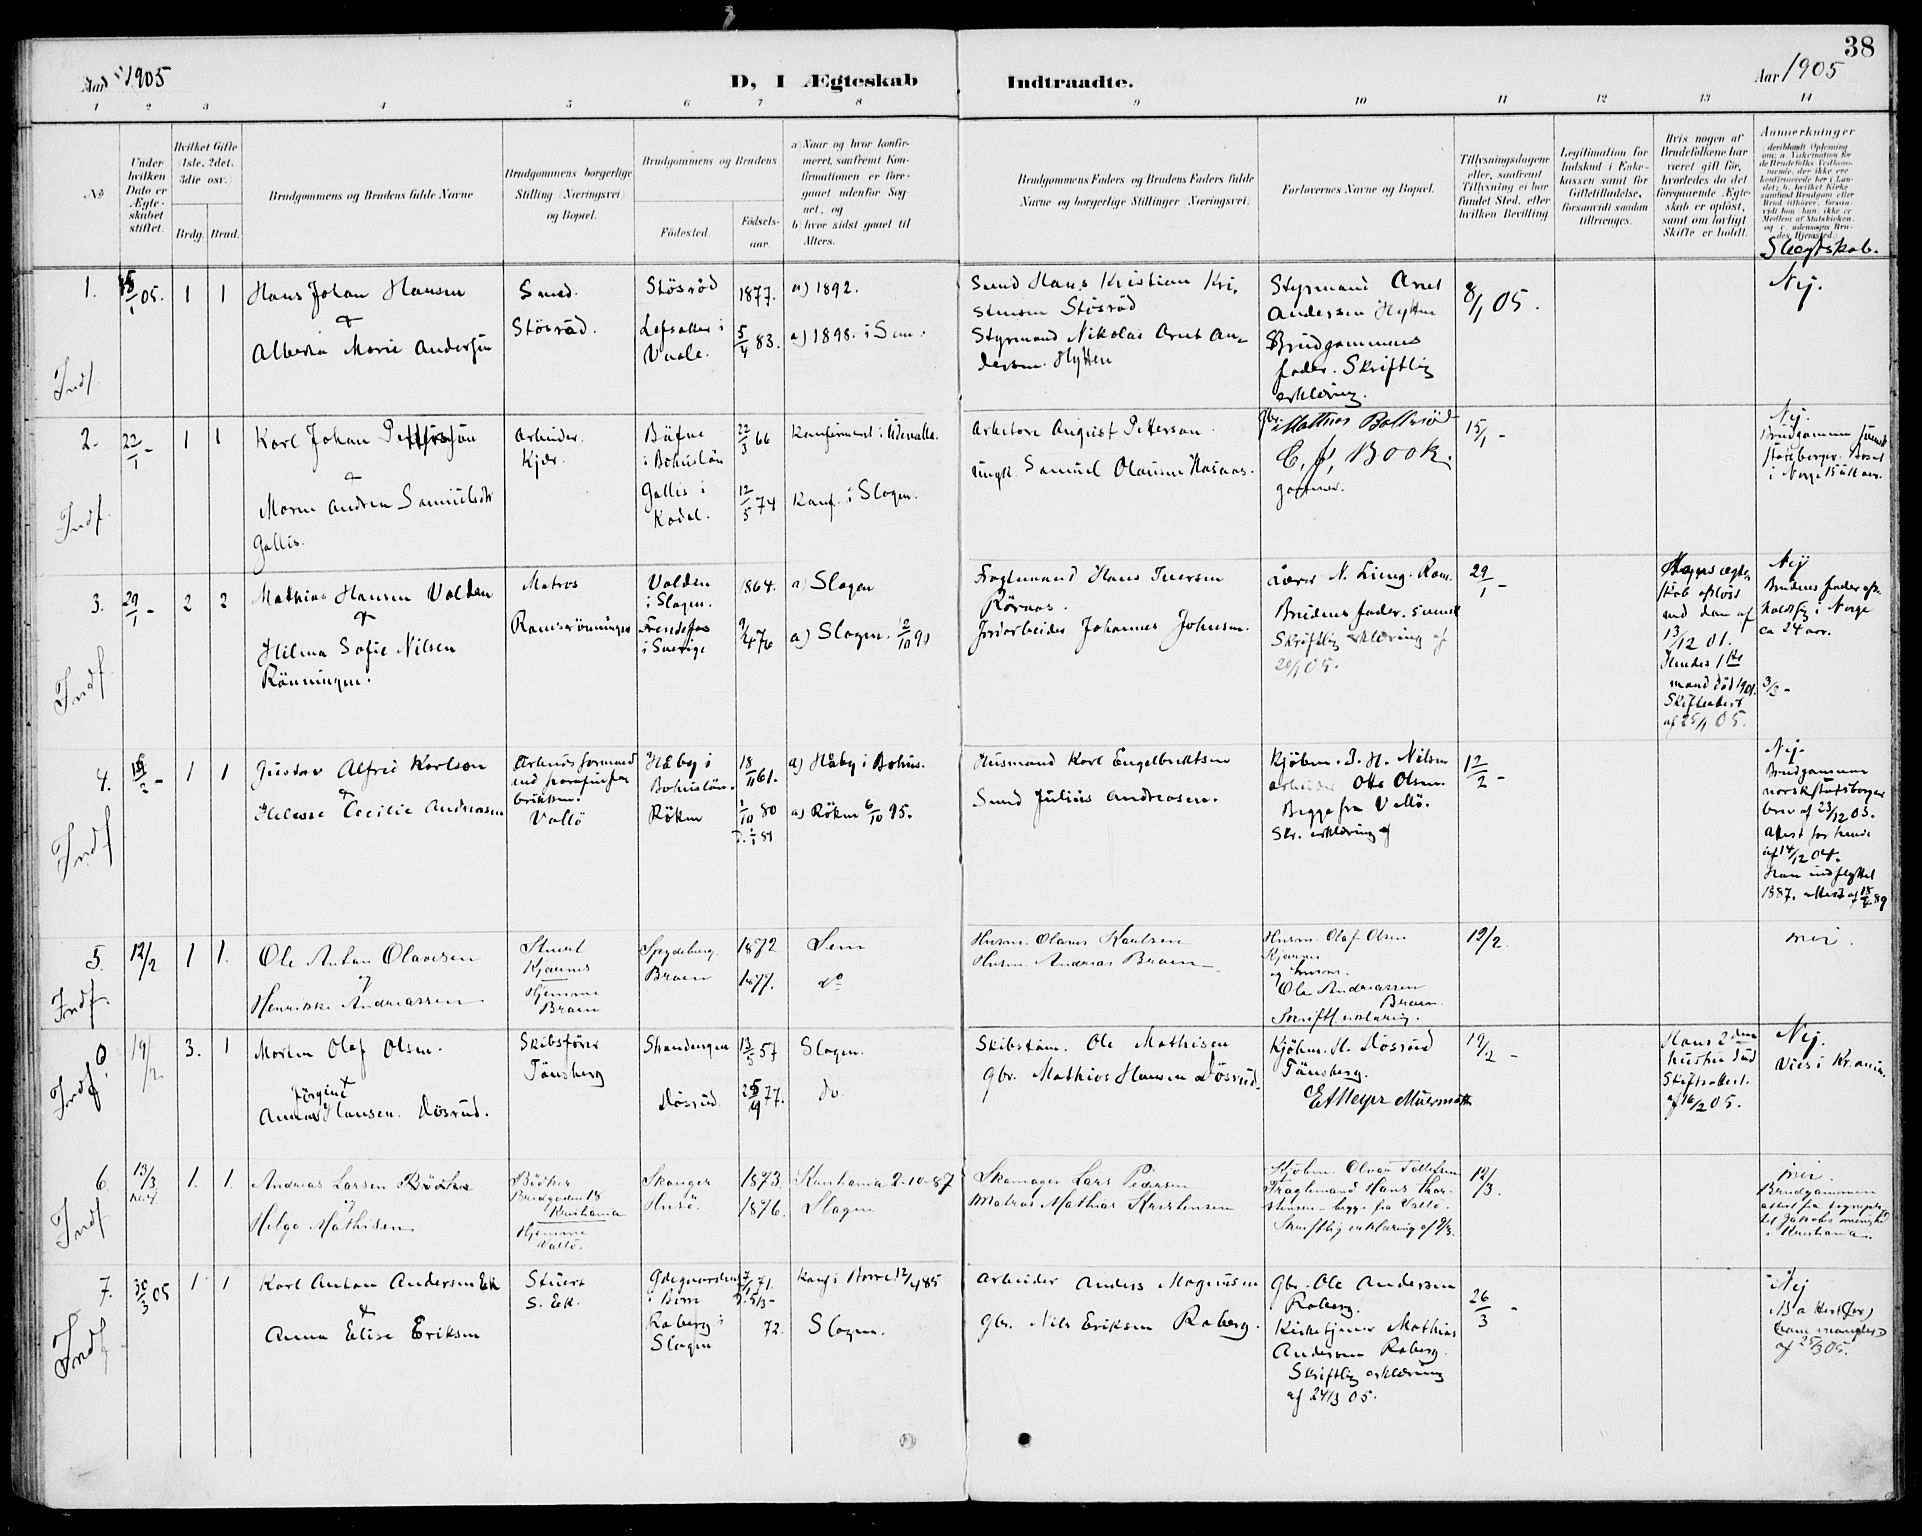 38
Aar 1905
D, I Ægteskab Indtraadte.
Aar 1905
1 2 3 4 5 6 7 8 9 10 11 12 13 14
No
Under hvilken Dato er Ægteskabet stiftet.
Hvilket Gifte (1ste, 2det, 3die osv.)
Brdg. Brud.
Brudgommens og Brudens fulde Navne
Brudgommens borgerlige Stilling (Næringsvei) og Bopæl.
Brudgommens og Brudens
Fødested.
Fødselsaar.
a) Naar og hvor konfirmeret, saafremt Konfirmationen er foregaaet udenfor Sognet, og
b) hvor sidst gaaet til Alters.
Brudgommens Faders og Brudens Faders fulde Navne og borgerlige Stillinger (Næringsvei).
Forlovernes Navne og Bopæl.
Tillysningsdagene eller, saafremt Tillysning ei har fundet Sted, efter hvilken Bevilling.
Legitimation for Indskud i Enkekassen samt for Giftetilladelse, forsaavidt saadan tiltrænges.
Hvis nogen af Brudefolkene har været gift før, hvorledes da det foregaaende Ægteskab er opløst, samt om lovligt Skifte er holdt.
Anmerkninger
Slægtskab.
1. 15/1 05. 1 1
Hans Johan Hansen
&
Alberta Marie Andersen
Smed.
Stösröd.
Stösröd
Lefsaker i
Vaale.
1877.
5/4 83.
a) 1892.
a) 1898. i Sem.
Smed Hans Kristian Kri-
stensen Stösröd
Styrmand Nikolai Arnt An-
dersen. Hytten
Styrmand Arnt
Andersen Hytten
Brudgommens
fader. Skriftlig
erklæring.
8/1 05.
Nej.
Indf.
2. 22/1 - 1 1
Karl Johan Petterson
&
Maren Andrea Samuelsdtr
Gallis.
Arbeider.
Kjær.
Bäfve
i Bohuslän
Gallis i
Kodal.
22/3 66
12/5 74
Konfirmert i Udevalla.
Konf. i Slagen.
Arbeider August Petterson.
Ungk. Samuel Olausen Hasaas.
Gbr. Mathias Bollerød
C. J. Book.
gartner.
15/1 -
Nej.
Brudgommen svensk
statsborger. Bosat
i Norge
Indf.
3. 29/1 - 2 2
Mathias Hansen Valden
&
Hilma Sofie Nilsen
Rönningen.
Matros
Ramsrönningen
Valden
i Slagen.
i Sverige
1864.
9/4 76
a) Slagen
a) Slagen. 12/10 90
Fragtmand Hans Iversen
Rörnas.
Jordarbeider Johannes Johnsen.
Lærer N. Lieng. Ram.
Brudens fader. svensk
Skriftlig erklæring af
20/1 05.
29/1
Hans ægte-
skab opløst
ved dom af
13/12 01.
Hendes 1ste
mand död 1901.
Skifteattest
af 25/1 05.
Nej
Brudens fader op-
holdt sig i Norge
ca 24 aar.
3/2 -
Indf
4. 1 1
Gustav Alfred Karlson
&
Helesse Cecilie Andreasen
Arbeidsformand
ved parafinfa-
briken.
Vallö
Håby i
Bohuslän.
Röken
18/11 61.
1/10 80
D. 1/1 81
a) Håby i Bohus.
a) Röken 6/10 95.
Husmand Karl Engelbrektsen
Smed Julius Andreasen.
Kjöbm. J. H. Nilsen
arbeider Otto Olsen.
Begge fra Vallö.
Skr. erklæring af
12/2 -
Nej.
Brudgommen
norsk statsborger
brev af 23/12 03.
Attest for hende
af 14/12 04.
Han indflyttet
1887. attest af 89
Indf
5. 12/2 1 1.
Ole Anton Olavesen
og
Henrikke Andreassen
Stuert
Kjærnes
Hjemme
Braen
Spydeberg.
Braen
1872
1877.
Sem
do
Husm. Olaves Karlsen
Husm. Andreas Braen
Husm. Olaf Olsen
Kjærnes
og husm.
Ole Andreassen
Braen.
Skriftl. erklæring.
12/2.
nei.
Indf.
0 19/2. 3. 1
Morten Olaf Olsen.
&
Anna Jörgine Hansen. Dösrud.
Skibsförer
Tönsberg
Strandengen
Dösrud.
13/5 57
25/9 77.
Slagen.
do.
Skibstöm. Ole Mathisen
Gbr. Mathias Hansen Dösrud.
Kjöbm. H. Dösrud
Tönsberg.
19/2 -
Hans 2den
hustru död
Skifteattest.
af 16/2 05.
Nej.
Vies i Kr.ania.
Indf.
6. 13/3 1. 1.
Andreas Larsen Bööker
og
Helga Mathisen
Bödker
Kristiania
Hjemme
Vallö.
Skanger
Husö.
1873.
1876.
Kristiania 2-10-87
Slagen
Skomager Lars Pedersen
Matros Mathias Kristensen
Kjöbm. Olvar Tollefsen
Fragtemand Hans Thor-
stensen - begge fra Vallö.
Skriftlig erklæring af 9/3.
12/3.
nei.
Brudgommen
attest fra sogneprest
til Jakobs menighed
i Kristiania.
Indf
7. 30/3 05 1. 1
Karl Anton Andersen Ek
&
Anna Elise Eriksen
Stuert
S. Ek.
Ödegaarden
i Borre
Roberg i
Slagen
72.
Konf. i Borre 12/4 85
Slagen.
Arbeider Anders Magnusen
Gbr. Nils Eriksen Roberg.
Gbr. Ole Andersen
Roberg.
Kirketjener Mathias
Andersen Roberg.
Skriftlig erklæring
af 24/3 05.
26/3 -
Nej
af 25/3 05.
Indf